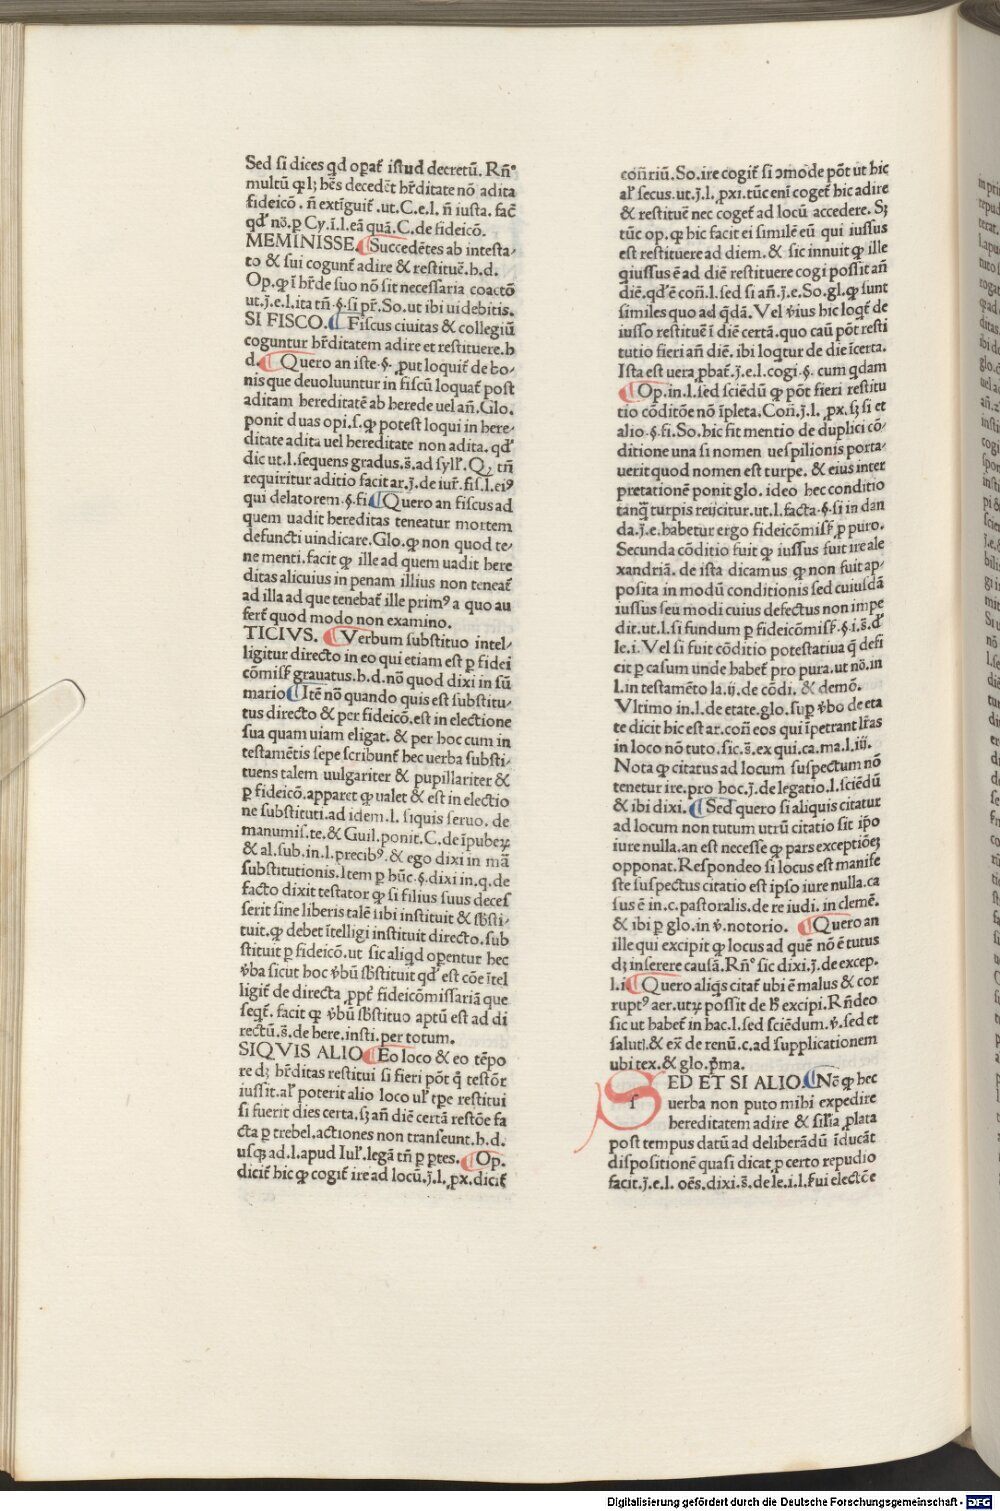 Sed si dices qd opat᷒ istud decretū. Rn̄ᵒ
multū ꝙ lꝫ hēs decedēt hr̄ditate nō adita
fideicō. n̄ extīguit᷒ .ut.C.e.l. n̄ iusta. fac̄
qd᷒ nō.ꝑ Cy.ī.l.eā quā.C.de fideicō.
MEMINISSE. ¶Succedētes ab intesta⸗
to & sui cogunt᷒ adire & restituē.h.d.
Op.ꝙ ī hr̄de suo nō sit necessaria coactō
ut.j.e.l.ita tn̄ .§.si pr̄.So.ut ibi uidebitis.
SI FISCO. ¶ Fiscus ciuitas & collegiū
coguntur hr̄ditatem adire et restituere.h
d. ¶ Quero an iste.§.ꝓut loquit᷒ de bo⸗
nis que deuoluuntur in fiscū loquat᷒ post
aditam hereditatē ab herede uel an̄. Glo.
ponit duas opi.s.ꝙ potest loqui in here⸗
ditate adita uel hereditate non adita. qd᷒
dic ut.l.sequens gradus.s̄.ad syll᷒. Qꝫ tn̄
requiritur aditio facit ar.j.de iur᷒. fis.l.eiꝰ
qui delatorem.§.fi. ¶Quero an fiscus ad
quem uadit hereditas teneatur mortem
defuncti uindicare. Glo.ꝙ non quod te⸗
ne menti. facit ꝙ ille ad quem uadit here
ditas alicuius in penam illius non teneat᷒
ad illa ad que tenebat᷒ ille primꝰ a quo au
fert᷒ quod modo non examino.
TICIVS. ¶Verbum substituo intel⸗
ligitur directo in eo qui etiam est ꝑ fidei
cōmiss᷒ grauatus.h.d.nō quod dixi in sū
mario ¶Itē nō quando quis est substitu⸗
tus directo & per fideicō.est in electione
sua quam uiam eligat. & per hoc cum in
testamētis sepe scribunt᷒ hec uerba substi⸗
tuens talem uulgariter & pupillariter &
ꝑ fideicō.apparet ꝙ ualet & est in electio
ne substituti.ad idem.l. siquis seruo. de
manumis.te.& Guil.ponit.C.de īpubeꝝ
& al.sub.in.l.precibꝰ.& ego dixi in mā
substitutionis.Item ꝑ hūc.§.dixi in.q.de
facto dixit testator ꝙ si filius suus deces
serit sine liberis talē sibi instituit & sb̄sti⸗
tuit.ꝙ debet ītelligi instituit directo.sub
stituit ꝑ fideicō.ut sic aliqd operentur hec
v̄ba sicut hoc v̄bū sb̄stituit qd᷒ est cōe ītel
ligit᷒ de directa ꝓpt᷒ fideicōmissariā que
seqt᷒. facit ꝙ v̄bū sb̄stituo aptū est ad di
rectū.s̄.de here.insti.per totum.
SIQVIS ALIO ¶Eo loco & eo tēpo
re dꝫ hr̄ditas restitui si fieri pōt q̄ testōr
iussit.al᷒ poterit alio loco ul᷒ tpe restitui
si fuerit dies certa.sꝫ an̄ diē certā restōe fa
cta ꝑ trebel.actiones non transeunt.h.d.
usqꝫ ad.l.apud Iul᷒.legā tn̄ ꝑ ꝑtes. ¶Op.
dicit᷒ hic ꝙ cogit᷒ ire ad locū.j.l.ꝓx.dicit᷒
con̄riū.So.ire cogit᷒ si ↄmode pōt ut hic
al᷒ secus.ut.j.l.ꝓxi.tūc enī coget᷒ hic adire
& restituē nec coget᷒ ad locū accedere. Sꝫ
tūc op.ꝙ hic facit ei similē eū qui iussus
est restituere ad diem. & sic innuit ꝙ ille
qiussus ē ad diē restituere cogi possit an̄
diē.qd᷒ē con̄.l.sed si an̄.j.e.So.gl.ꝙ sunt
similes quo ad q̄dā. Vel v̄ius hic loqt᷒ de
iusso restituē ī diē certā.quo cau᷒ pōt resti
tutio fieri an̄ diē. ibi loqtur de die īcerta.
Ista est uera ꝓbat᷒.j.e.l.cogi.§. cum qdam
¶Op.in.l.sed sciēdū ꝙ pōt fieri restitu
tio cōditōe nō īpleta.Con̄.j.l. ꝓx.sꝫ si et
alio.§.fi.So.hic fit mentio de duplici cō⸗
ditione una si nomen uespilionis porta⸗
uerit quod nomen est turpe. & eius inter
pretationē ponit glo. ideo hec conditio
tanq̄ turpis reijcitur.ut.l.facta.§.si in dan
da.j.e.habetur ergo fideicōmiss᷒ ꝓ puro.
Secunda cōditio fuit ꝙ iussus fuit ire ale
xandriā. de ista dicamus ꝙ non fuit ap⸗
posita in modū conditionis sed cuiusdā
iussus seu modi cuius defectus non impe
dit.ut.l.si fundum ꝑ fideicōmiss᷒.§.i.s̄.d᷒
le.i. Vel si fuit cōditio potestatiua q̄ defi
cit ꝑ casum unde habet᷒ pro pura.ut nō.in
l.in testamēto la.ij.de cōdi. & demō.
Vltimo in.l.de etate.glo.suꝑ v̄bo de eta
te dicit hic est ar.con̄ eos qui īpetrant lr̄as
in loco nō tuto.sic.s̄.ex qui.ca.ma.l.iij.
Nota ꝙ citatus ad locum suspectum nō
tenetur ire.pro hoc.j.de legatio.l.sciēdū
& ibi dixi. ¶Sed quero si aliquis citatur
ad locum non tutum utrū citatio sit ip̄o
iure nulla.an est necesse ꝙ pars exceptiōeꝫ
opponat.Respondeo si locus est manife
ste suspectus citatio est ipso iure nulla.ca
sus ē in.c.pastoralis.de re iudi. in clemē.
& ibi ꝑ glo.in v̄.notorio. ¶Quero an
ille qui excipit ꝙ locus ad quē nō ē tutus
dꝫ inserere causā.Rn̄ᵒ sic dixi.j.de excep.
l.i ¶Quero aliqs citat᷒ ubi ē malus & cor
ruptꝰ aer.utꝝ possit de h̄ excipi.Rn̄deo
sic ut habet᷒ in hac.l.sed sciēdum.v̄.sed et
salutl.& ex̄ de renū.c.ad supplicationem
ubi tex.& glo.p̄ma.
SED ET SI ALIO. ¶Nō ꝙ hec
uerba non puto mihi expedire
hereditatem adire & silīa ꝓlata
post tempus datū ad deliberādū īducāt
dispositionē quasi dicat ꝑ certo repudio
facit.j.e.l. oēs.dixi.s̄.de le.i.l.s̄ui electōe
Digitalisierung gefördert durch die Deutsche Forschungsgemeinschaft - DFG